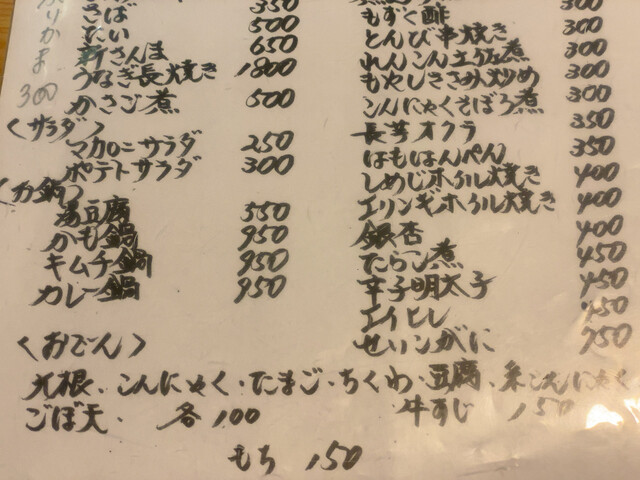 かま
300
さば 350
たい 500
新さんま 650
うなぎ長焼き 1800
かさご煮 500
<サラダ>
マカロニサラダ 250
ポテトサラダ 300
湯豆腐 550
かも鍋 950
キムチ鍋 950
カレー鍋 950
もずく酢 300
とんび串焼き 300
れんこん土佐煮 300
もやしささみ炒め 300
こんにゃくそぼろ煮 300
長芋オクラ 350
はもはんぺん 350
しめじホイル焼き 400
エリンギホイル焼き 400
銀杏 400
たらこ煮 450
辛子明太子 450
エイヒレ 450
せいこがに 750
<おでん>
大根、こんにゃく・たまご・ちくわ・豆腐、糸こんにゃく
ごぼ天、各100 牛すじ 150
もち 150